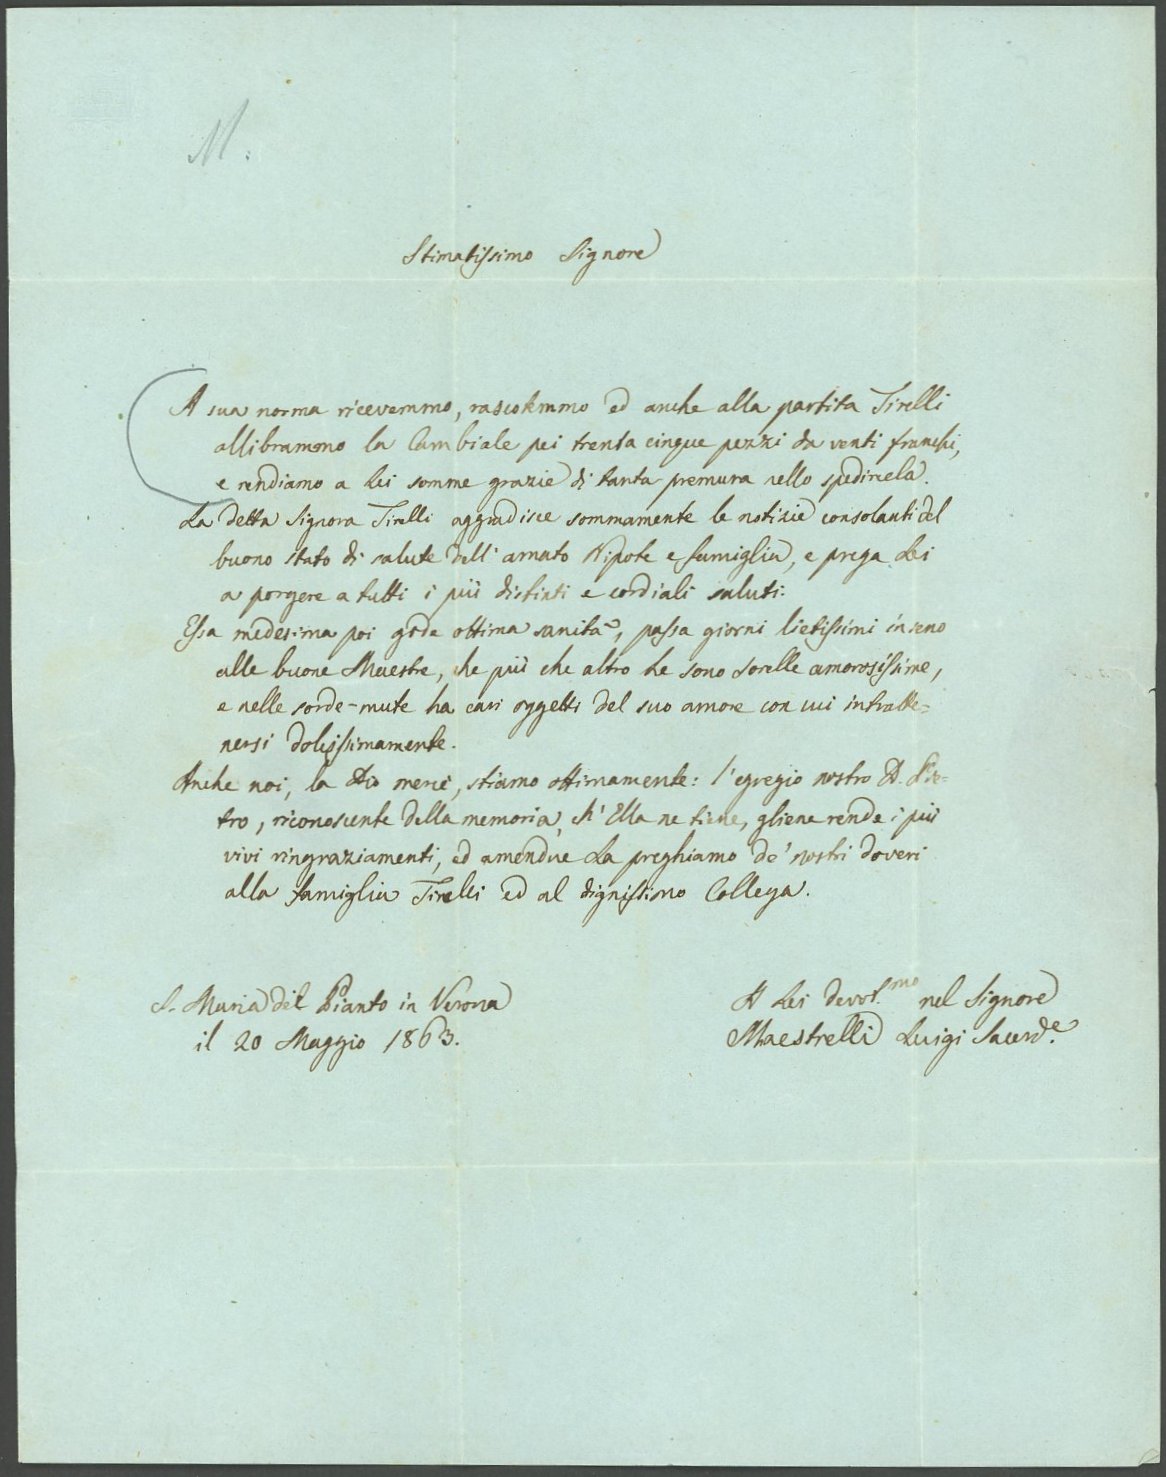 M.
Stimatissimo Signore
A sua norma ricevemmo, rascotemmo ed anche alla partita Tirelli
allibrammo la Cambiale pei trenta cinque pezzi da venti franchi,
e rendiamo a Lei somme grazie di tanta premura nello spedircela.
La detta Signora Tirelli aggradisce sommamente le notizie consolanti del
buono stato di salute dell' amato Nipote e famiglia, e prega Lei
a porgere a tutti i più distinti e cordiali saluti.
Essa medesima poi gode ottima sanità, passa giorni lietissimi in seno
alle buone Maestre, che più che altro le sono sorelle amorosissime,
e nelle sorde-mute ha cari oggetti del suo amore con cui intratte=
nersi dolcissimamente.
Anche noi, la Dio mercè, stiamo ottimamente: l'egregio nostro D. Pie=
tro, riconoscente della memoria, ch' Ella ne tiene, gliene rende i più
vivi ringraziamenti, ed amendue La preghiamo de' nostri doveri
alla famiglia Tirelli ed al dignissimo Collega.
S. Maria del Pianto in Verona
il 20 Maggio 1863.
A Lei devot.mo nel Signore
Maestrelli Luigi Sacerd.e